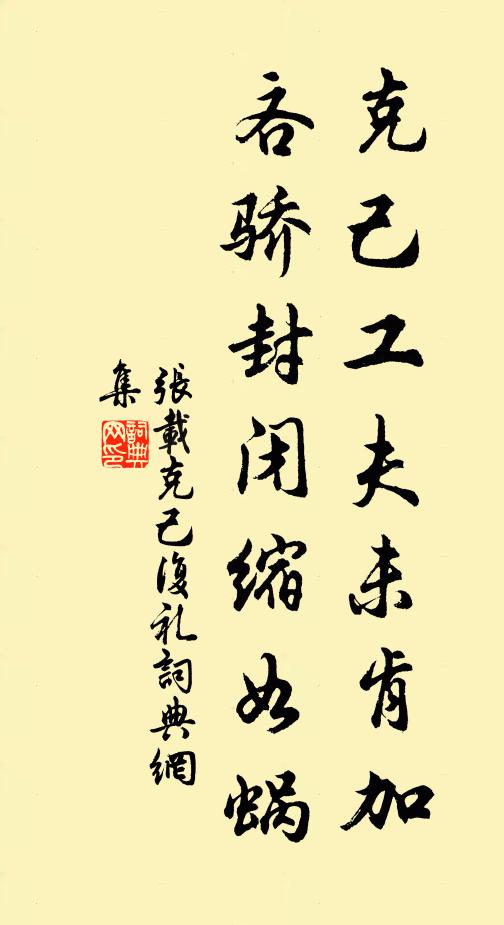 克己工夫未肯加
吝骄封闭缩如蜗
張載克己復礼詞典網
集
詞典
网印